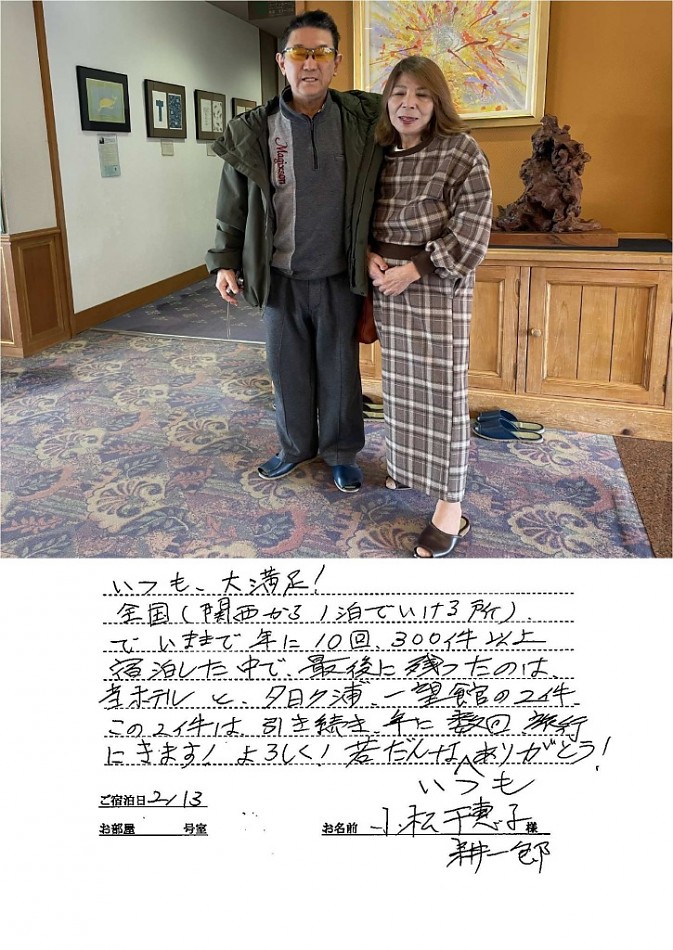 Magixson
いつも、大満足!
全国(関西から1泊でいける所)、
で いままで 年に10回、300件以上
宿泊した中で、最後に残ったのは、
当ホテル と、夕日ヶ浦、一望館の2件、
この2件は、引き続き、年に数回 旅行
にきます! よろしく! 若だんな いつも ありがとう!
ご宿泊日 2/13
お部屋 号室 お名前 小松千恵子 様
耕一郎